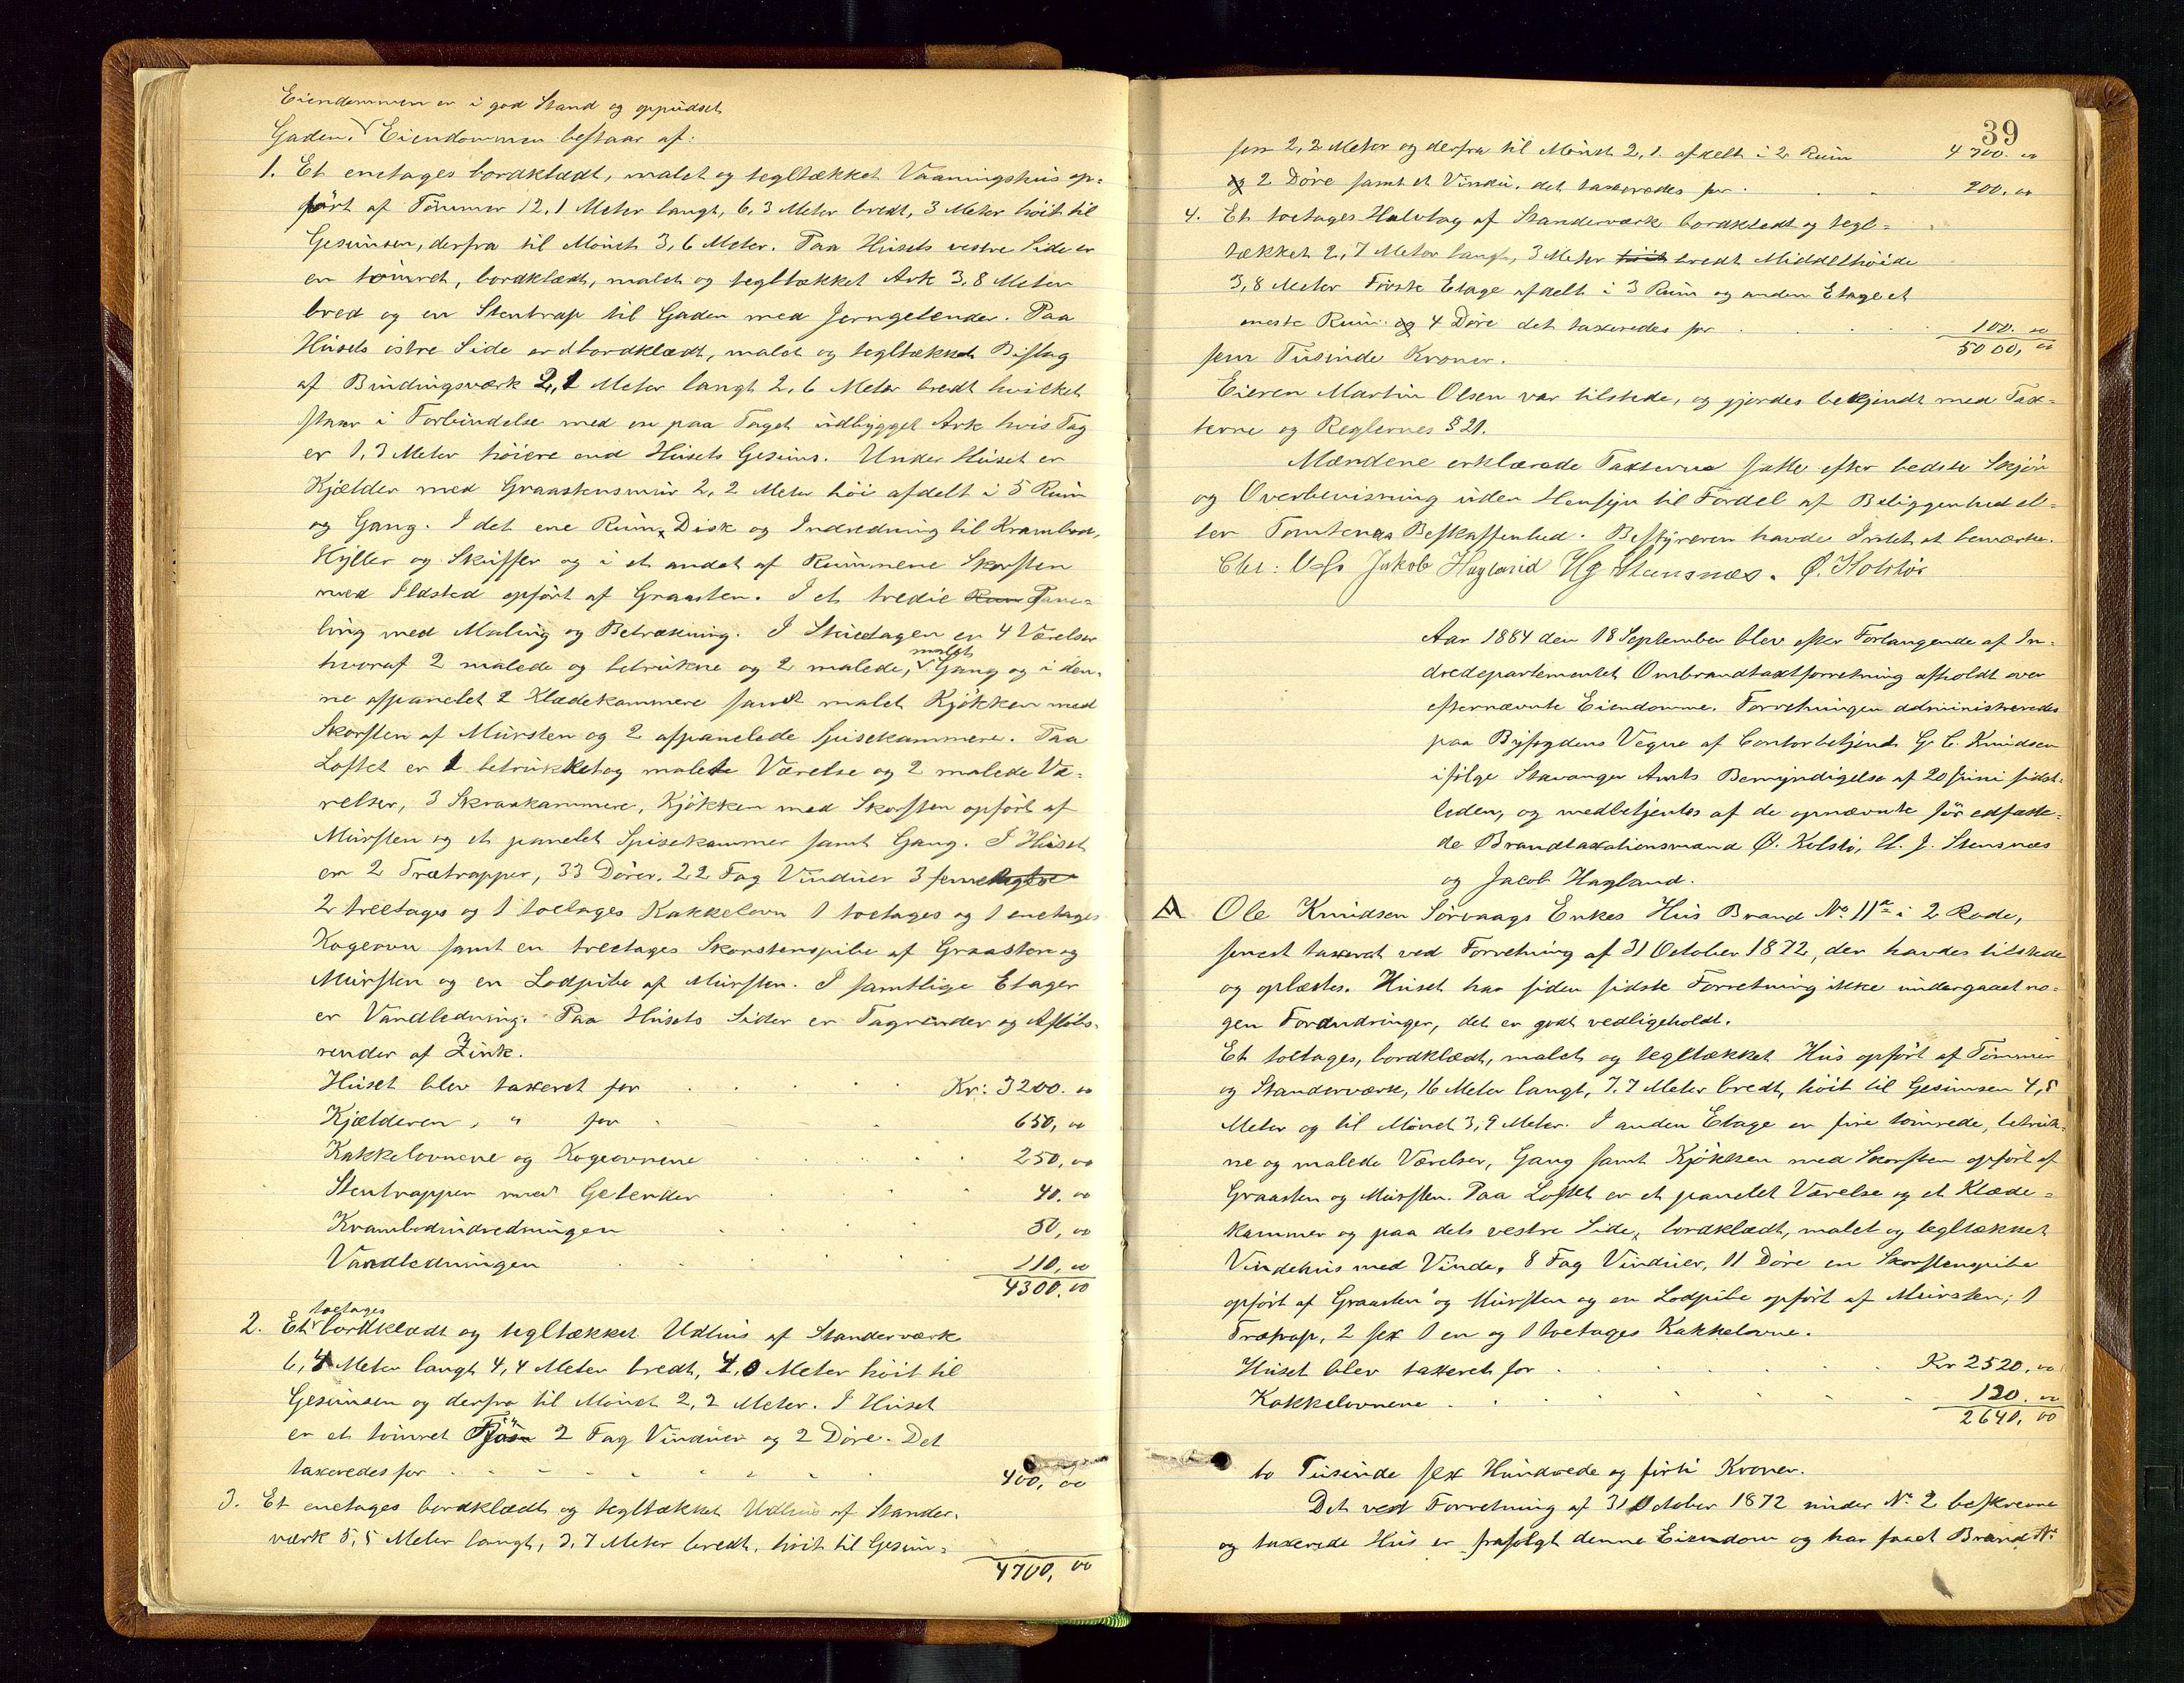 Eiendommen er i god Stand og oppudset
Gaden. Eiendommen bestaar af:
1. Et enetages bordklædt, malet og tegltækket Vaaningshus op-
ført af Tømmer 12,1 Meter langt, 6,3 Meter bredt, 3 Meter høit til
Gesimsen, derfra til Mønet 3,6 Meter. Paa Husets vestre Side er
en tømret, bordklædt, malet og tegltækket Ark 3,8 Meter
bred og en Stentrap til Gaden med Jerngelender. Paa
Husets østre Side er et bordklædt, malet og tegltækket Bislag
af Bindingsværk 2,1 Meter langt 2,6 Meter bredt hvilket
staar i Forbindelse med en paa Taget udbygget Ark hvis Tag
er 1,3 Meter høiere end Husets Gesims. Under Huset er
Kjælder med Graastensmur 2,2 Meter høi afdelt i 5 Rum
og Gang. I det ene Rum, Disk og Indredning til Krambod,
Hyller og Skuffer og i et andet af Rummene Skorsten
med Ildsted opført af Graasten. I et tredie Rum Pane-
ling med Maling og Betrækning. I Stuetagen er 4 Værelser
hvoraf 2 malede og betrukne og 2 malede, malet Gang og i den-
ne afpanelet 2 Klædekammere samt malet Kjøkken med
Skorsten af Mursten og 2 afpanelede Spisekammere. Paa
Loftet er 1 betrukket og malet Værelse og 2 malede Væ-
relser, 3 Skraakammere, Kjøkken med Skorsten opført af
Mursten og et panelet Spisekammer samt Gang. I Huset
er 2 Trætrapper, 33 Dører, 22 Fag Vinduer 3 femetages
2 treetages og 1 toetages Kakkelovn 1 toetages og 1 enetages
Kogeovn samt en treetages Skorstenspibe af Graasten og
Mursten og en Lodpibe af Mursten. I samtlige Etager
er Vandledning. Paa Husets Sider er Tagrender og Afløbs-
render af Zink.
Huset blev taxeret for Kr: 3200. 00
Kjælderen, " for 650, 00
Kakkelovnene og Kogeovnene 250, 00
Stentrappen med Gelender 40, 00
Krambodindredningen 50, 00
Vandledningen 110, 00
4300, 00
2. Et toetages bordklædt og tegltækket Udhus af Standerværk
6,4 Meter langt 4,4 Meter bredt, 4,0 Meter høit til
Gesimsen og derfra til Mønet 2,2 Meter. I Huset
er et tømret Fjøs 2 Fag Vinduer og 2 Døre. Det
taxeredes for 400, 00
3. Et enetages bordklædt og tegltækket Udhus af Stander-
værk 5,5 Meter langt, 3,7 Meter bredt, høit til Gesim-
4700, 00
39
sen 2,2 Meter og derfra til Mønet 2,1. afdelt i 2 Rum 4700. 00
og 2 Døre samt et Vindu. det taxeredes for 200. 00
4. Et toetages Halvtag af Standerværk bordklædt og tegl-
tækket 2,7 Meter langt, 3 Meter høit bredt Middelhøide
3,8 Meter Første Etage afdelt i 3 Rum og anden Etage et
eneste Rum og 4 Døre det taxeredes for 100. 00
5000, 00
fem Tusinde Kroner.
Eieren Martin Olsen var tilstede, og gjordes bekjendt med Tax-
terne og Reglernes § 21.
Mændene erklærede Taxterne satte efter bedste Skjøn
og Overbevisning uden Hensyn til Fordel af Beliggenhed el-
ler Tomtens Beskaffenhed. Bestyreren havde Intet at bemærke.
Jakob Hagland HJ Stensnæs. Ø. Kolstø
Aar 1884 den 18 September blev efter Forlangende af In-
dredepartementet Ombrandtaxtforretning afholdt over
efternævnte Eiendomme. Forretningen administreredes
paa Byfogdens Vegne af Contorbetjent G. C. Knudsen
ifølge Stavanger Amts Bemyndigelse af 20 Juni sidst-
leden, og medbetjentes af de opnævnte før edfæste-
de Brandtaxationsmænd Ø. Kolstø, H. J. Stensnæs
og Jacob Hagland.
A Ole Knudsen Sørvaags Enkes Hus Brand No 11a i 2 Rode,
senest taxeret ved Forretning af 31 October 1872, der havdes tilstede
og oplæstes. Huset har siden sidste Forretning ikke undergaaet no-
gen Forandringer, det er godt vedligeholdt.
Et toetages, bordklædt, malet og tegltækket Hus opført af Tømmer
og Standerværk, 16 Meter langt, 7,7 Meter bredt, høit til Gesimsen 4,8
Meter og til Mønet 3,9 Meter. I anden Etage er fire tømrede, betruk-
ne og malede Værelser, Gang samt Kjøkken med Skorsten opført af
Graasten og Mursten. Paa Loftet er et panelet Værelse og et Klæde-
kammer og paa dets vestre Side, bordklædt, malet og tegltækket
Vindehus med Vinde, 8 Fag Vinduer, 11 Døre en Skorstenspibe
opført af Graasten og Mursten og en Lodpibe opført af Mursten, 1
Trætrap, 2 sex 1 en og 1 toetages Kakkelovne.
Huset blev taxeret for Kr 2520, 00
Kakkelovnene 120. 00
2640, 00
to Tusinde sex Hundrede og firti Kroner.
Det ved Forretning af 31 October 1872 under No 2 beskrevne
og taxerede Hus er frasolgt denne Eiendom og har faaet Brand No